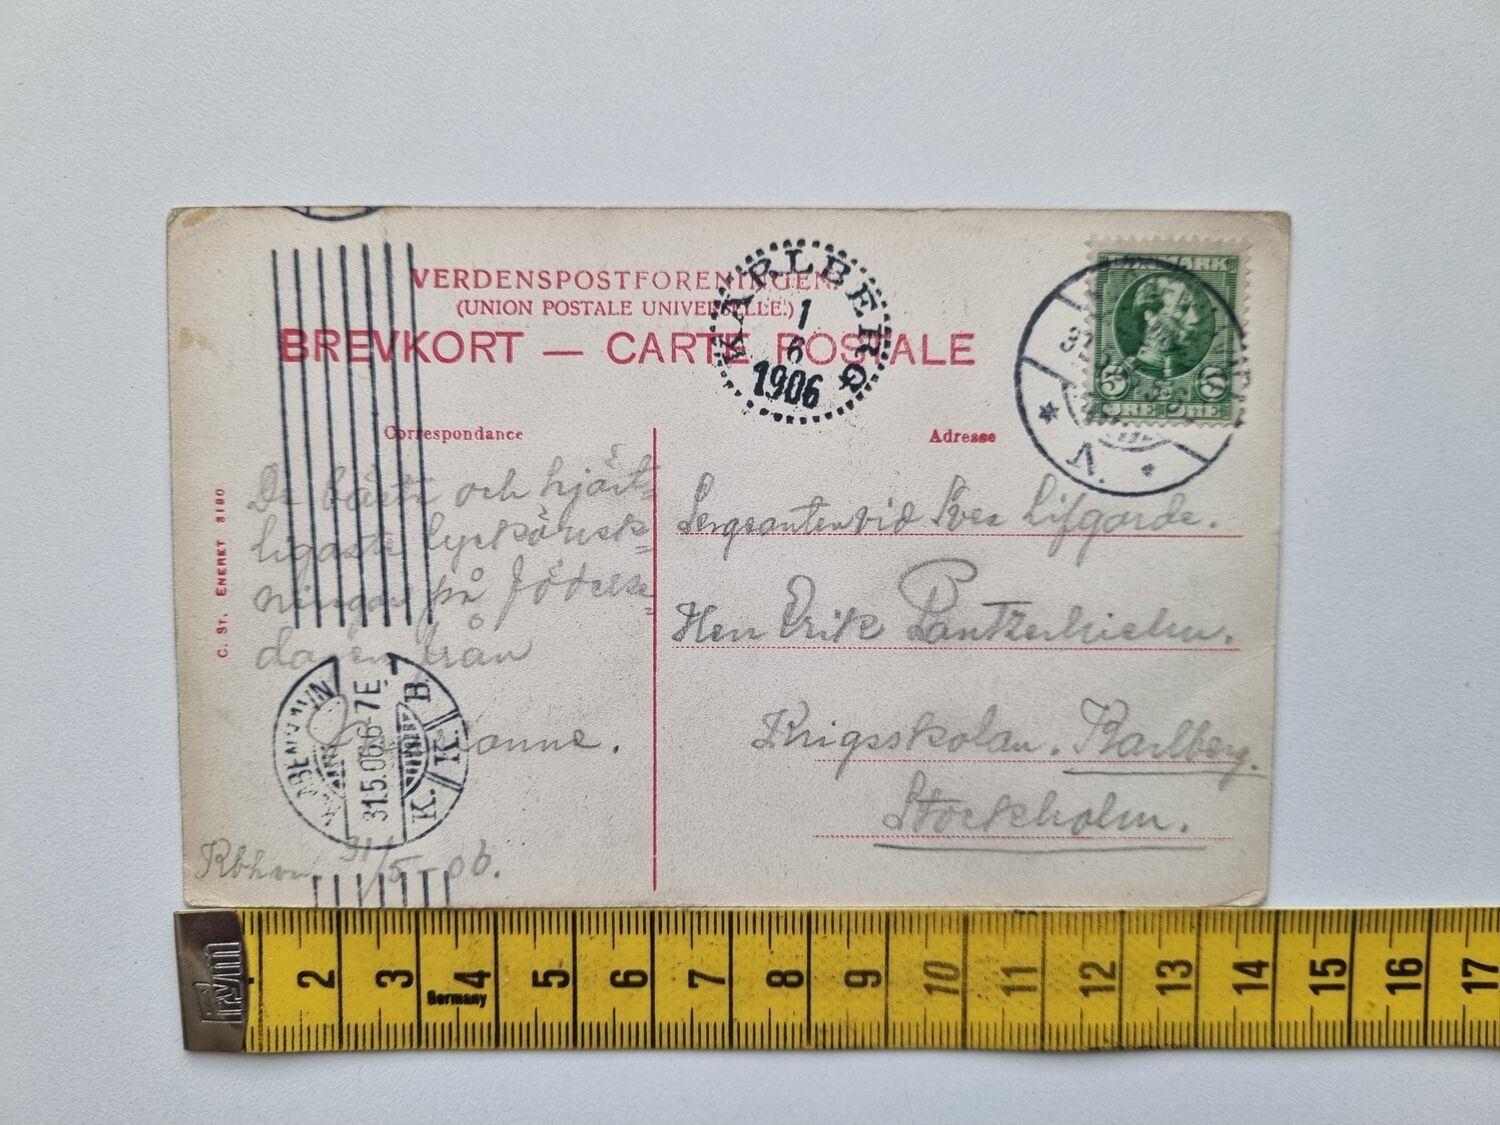 VERDENSPOSTFORENINGEN.
(UNION POSTALE UNIVERSELLE.)
BREVKORT — CARTE POSTALE
KARLBERG
1
6
1906
DANMARK
5 5
ØRE ØRE
V.
Correspondance
Adresse
De bästa och hjärt-
ligaste lyckönsk-
ningar på födelse-
dagen från
Kbhvn 31/5-06.
KJØBENHAVN
31.5.06.6-7E.
K. K. B.
Sergeanten vid Svea Lifgarde.
Herr Erik
Krigsskolan. Karlberg.
Stockholm.
C. St. ENERET 3190
Prym
Germany
1 2 3 4 5 6 7 8 9 10 11 12 13 14 15 16 17